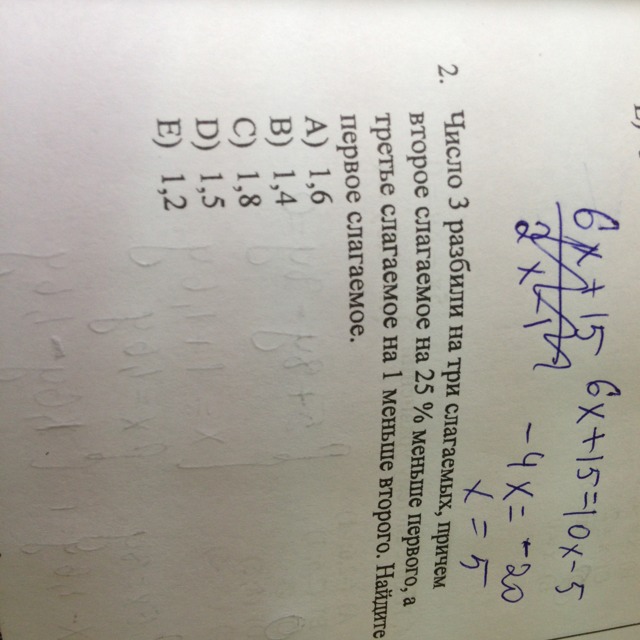 6x + 15 6x+15=10x-5
2x-1
-4x=-20
x = 5
2. Число 3 разбили на три слагаемых, причем
второе слагаемое на 25 % меньше первого, а
третье слагаемое на 1 меньше второго. Найдите
первое слагаемое.
A) 1,6
B) 1,4
C) 1,8
D) 1,5
E) 1,2